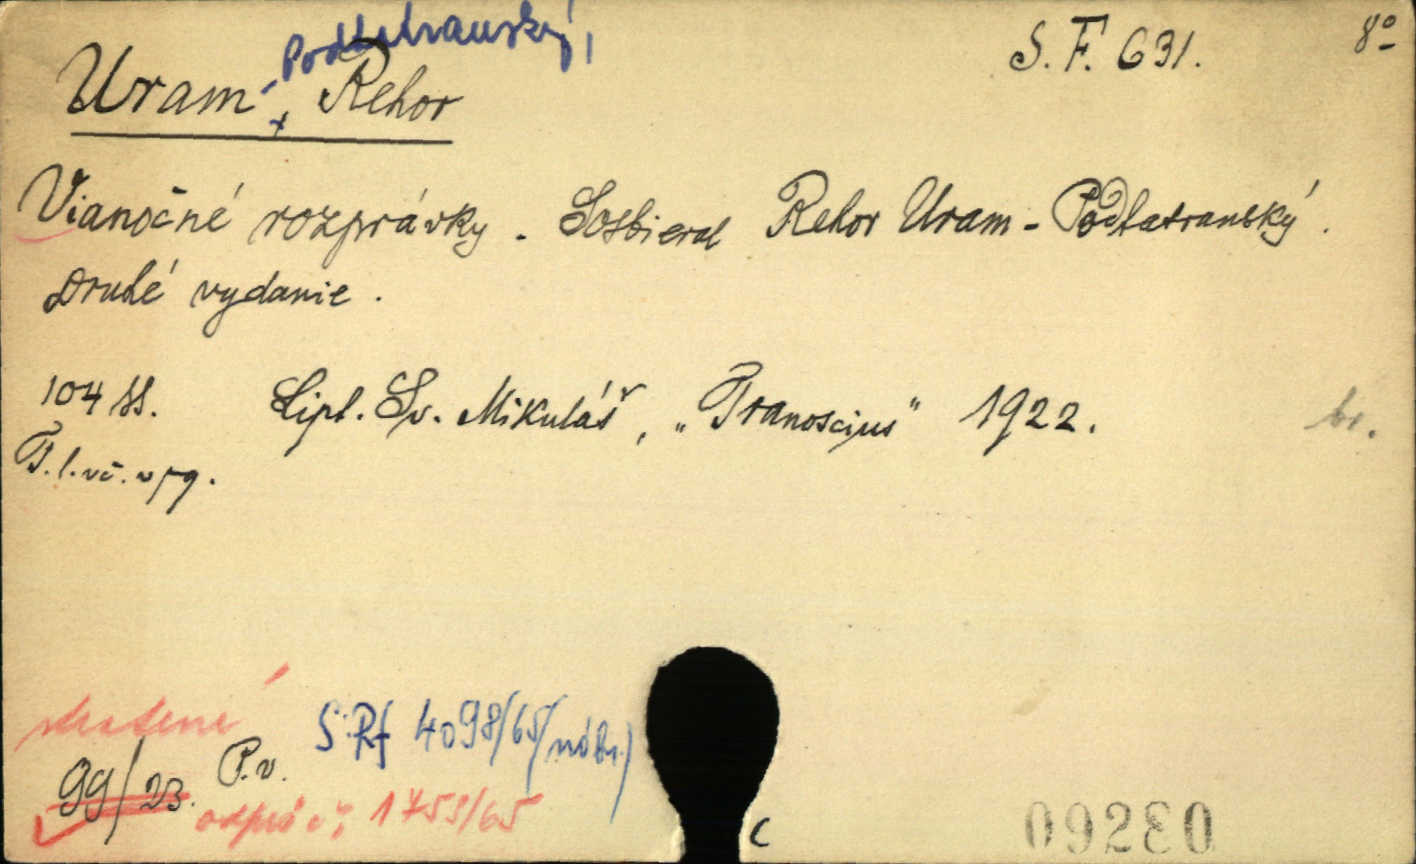 Podtatranský,
Uram-, Rehor
S. F. 631.
8°
Vianočné rozprávky. Sosbieral Rehor Uram-Podtatranský.
Druhé vydanie.
104 ss. Lipt. Sv. Mikuláš, „Tranoscius" 1922.
br.
T. l. úč. v pg.
stratené
S Rf 4098/65/náhr.)
99/23. P.v.
odpis č. 1758/65
C
09280